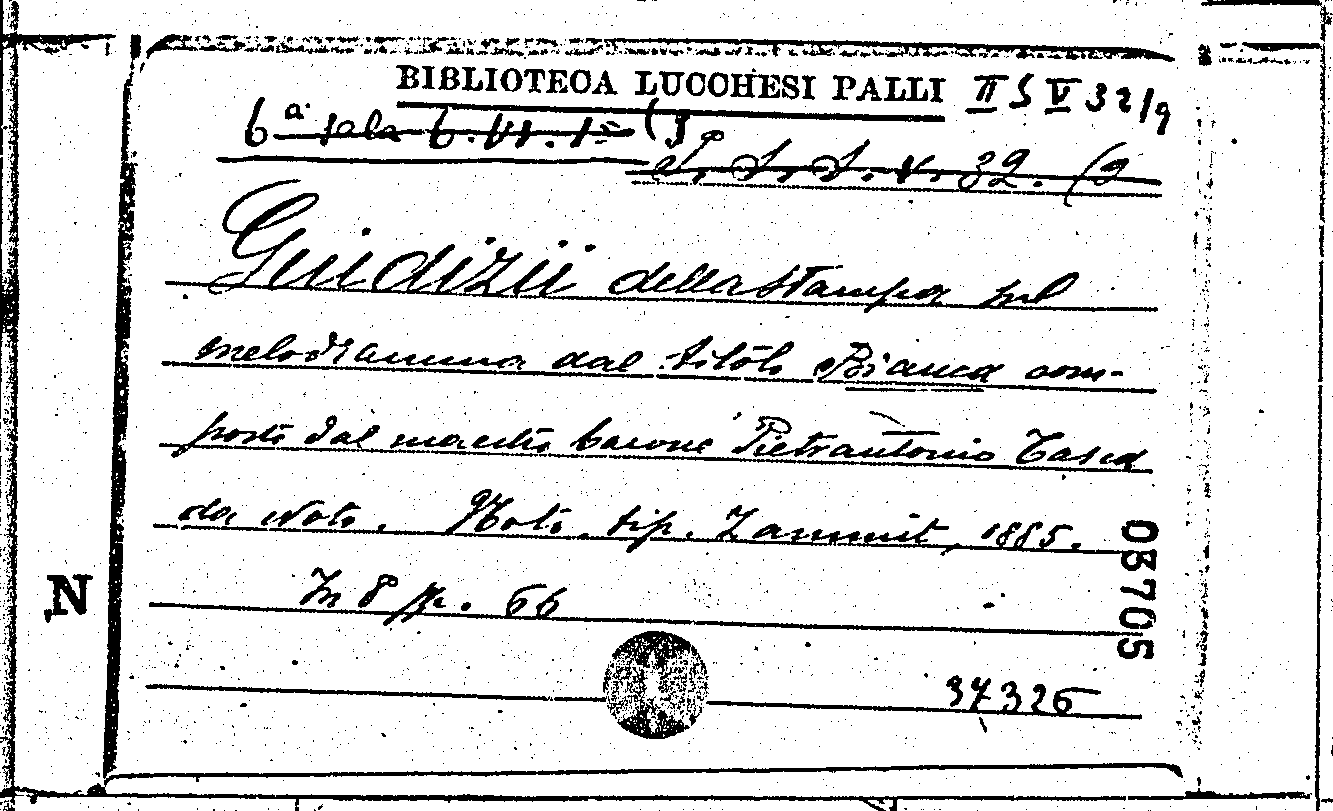 BIBLIOTECA LUCCHESI PALLI II S V 32/9
6ª sala 6. VI. 1= (9
S. S. V. 32. (9
Giudizii della stampa sul
melodramma dal titolo Bianca com-
posto dal maestro barone Pietrantonio Tasca
da Noto. Noto, tip. Zammit, 1885.
In 8 pp. 66
N
03705
37326